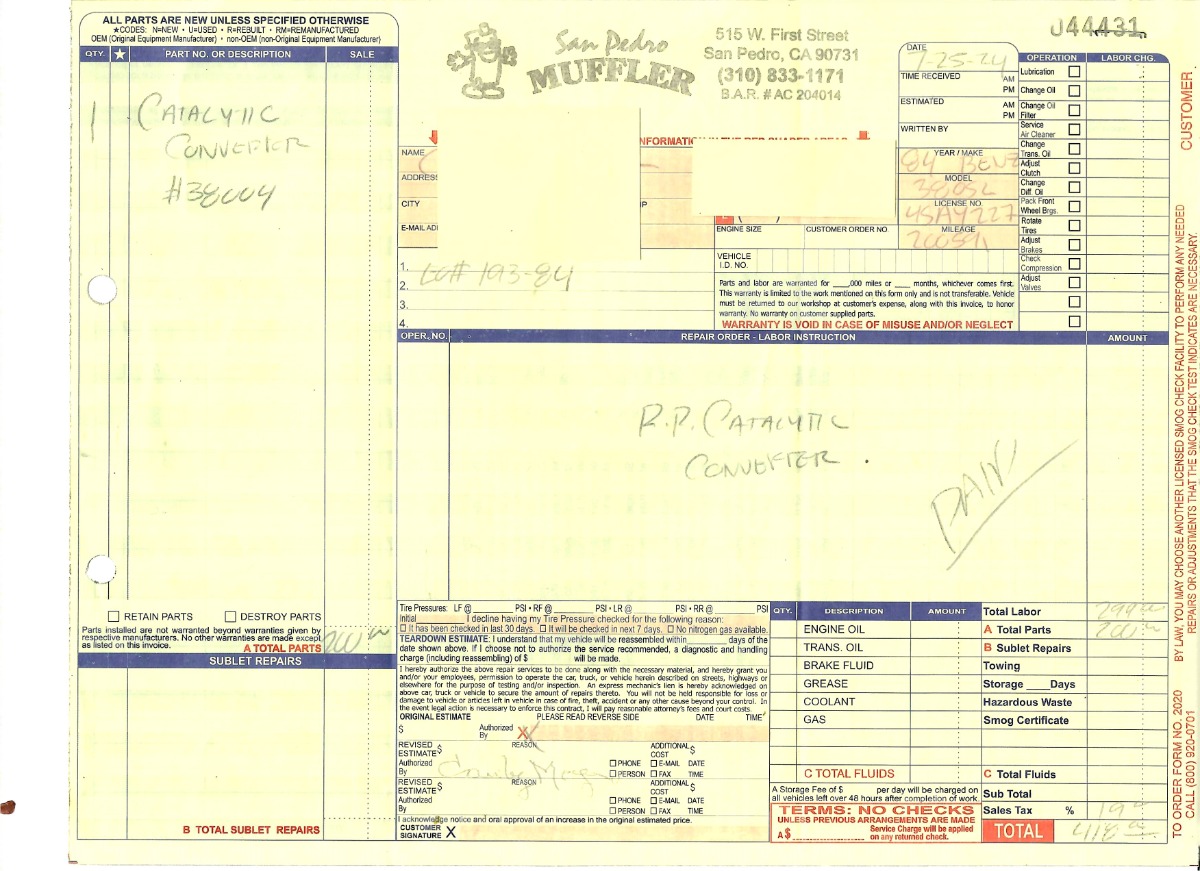 ALL PARTS ARE NEW UNLESS SPECIFIED OTHERWISE
★CODES: N=NEW • U=USED • R=REBUILT • RM=REMANUFACTURED
OEM (Original Equipment Manufacturer) • non-OEM (non-Original Equipment Manufacturer)
QTY. ★ PART NO. OR DESCRIPTION SALE
1 CATALYTIC
CONVERTER
#38004
RETAIN PARTS DESTROY PARTS
Parts installed are not warranted beyond warranties given by
respective manufacturers. No other warranties are made except
as listed on this invoice.
A TOTAL PARTS 200
SUBLET REPAIRS
B TOTAL SUBLET REPAIRS
San Pedro
MUFFLER
515 W. First Street
San Pedro, CA 90731
(310) 833-1171
B.A.R. # AC 204014
044431
NAME
ADDRESS
CITY
E-MAIL AD
DATE
7-25-24
TIME RECEIVED AM
PM
ESTIMATED AM
PM
WRITTEN BY
YEAR / MAKE
84 BENZ
MODEL
380SL
LICENSE NO.
4SAY227
MILEAGE
200591
ENGINE SIZE CUSTOMER ORDER NO.
VEHICLE
I.D. NO.
1.
2. Lot# 193-84
3.
4.
Parts and labor are warranted for ____,000 miles or ____ months, whichever comes first.
This warranty is limited to the work mentioned on this form only and is not transferable. Vehicle
must be returned to our workshop at customer's expense, along with this invoice, to honor
warranty. No warranty on customer supplied parts.
WARRANTY IS VOID IN CASE OF MISUSE AND/OR NEGLECT
OPERATION LABOR CHG.
Lubrication
Change Oil
Change Oil
Filter
Service
Air Cleaner
Change
Trans. Oil
Adjust
Clutch
Change
Diff. Oil
Pack Front
Wheel Brgs.
Rotate
Tires
Adjust
Brakes
Check
Compression
Adjust
Valves
OPER. NO. REPAIR ORDER - LABOR INSTRUCTION AMOUNT
R.P. CATALYTIC
CONVERTER.
PAID
Tire Pressures: LF @ ____ PSI • RF @ ____ PSI • LR @ ____ PSI • RR @ ____ PSI
Initial ____ I decline having my Tire Pressure checked for the following reason:
It has been checked in last 30 days. It will be checked in next 7 days. No nitrogen gas available.
TEARDOWN ESTIMATE: I understand that my vehicle will be reassembled within ____ days of the
date shown above. If I choose not to authorize the service recommended, a diagnostic and handling
charge (including reassembling) of $ ____ will be made.
I hereby authorize the above repair services to be done along with the necessary material, and hereby grant you
and/or your employees, permission to operate the car, truck, or vehicle herein described on streets, highways or
elsewhere for the purpose of testing and/or inspection. An express mechanic's lien is hereby acknowledged on
above car, truck or vehicle to secure the amount of repairs thereto. You will not be held responsible for loss or
damage to vehicle or articles left in vehicle in case of fire, theft, accident or any other cause beyond your control. In
the event legal action is necessary to enforce this contract, I will pay reasonable attorney's fees and court costs.
ORIGINAL ESTIMATE PLEASE READ REVERSE SIDE DATE TIME
$ Authorized
By X
REVISED
ESTIMATE $ REASON ADDITIONAL
COST $
Authorized
By PHONE E-MAIL DATE
PERSON FAX TIME
REVISED
ESTIMATE $ REASON ADDITIONAL
COST $
Authorized
By PHONE E-MAIL DATE
PERSON FAX TIME
I acknowledge notice and oral approval of an increase in the original estimated price.
CUSTOMER
SIGNATURE X
QTY. DESCRIPTION AMOUNT
ENGINE OIL
TRANS. OIL
BRAKE FLUID
GREASE
COOLANT
GAS
C TOTAL FLUIDS
A Storage Fee of $ ____ per day will be charged on
all vehicles left over 48 hours after completion of work.
TERMS: NO CHECKS
UNLESS PREVIOUS ARRANGEMENTS ARE MADE
A $ ____ Service Charge will be applied
on any returned check.
Total Labor
A Total Parts 200
B Sublet Repairs
Towing
Storage ____ Days
Hazardous Waste
Smog Certificate
C Total Fluids
Sub Total
Sales Tax % 19
TOTAL 418
CUSTOMER
BY LAW, YOU MAY CHOOSE ANOTHER LICENSED SMOG CHECK FACILITY TO PERFORM ANY NEEDED
REPAIRS OR ADJUSTMENTS THAT THE SMOG CHECK TEST INDICATES ARE NECESSARY.
TO ORDER FORM NO. 2020
CALL (800) 920-0701